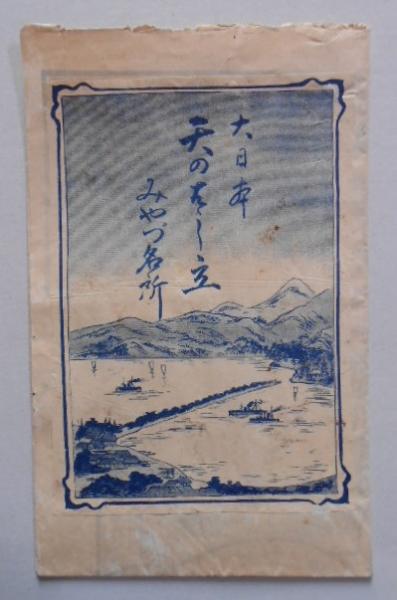 大日本
天のはし立
みやづ名所